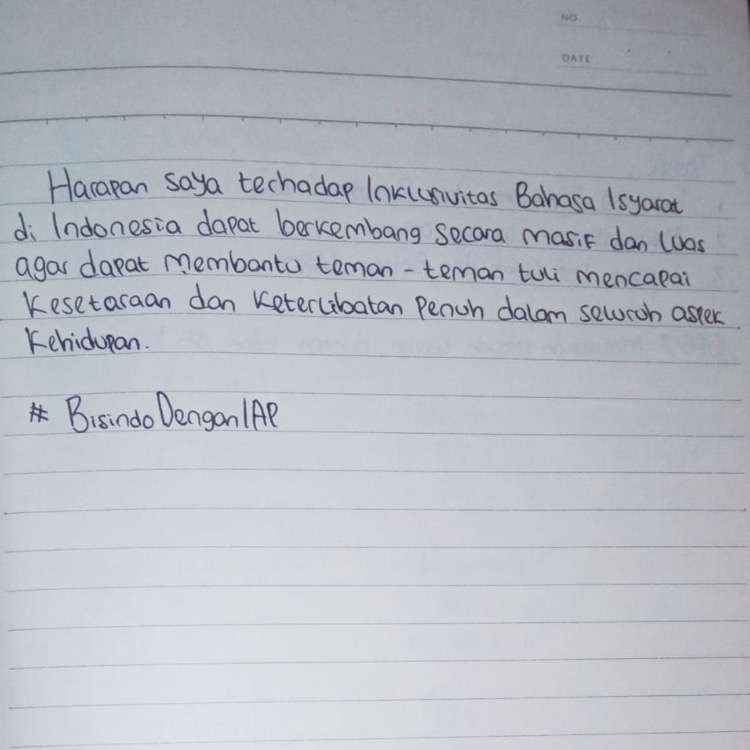 NO
DATE
Harapan saya terhadap Inklusivitas Bahasa Isyarat
di Indonesia dapat berkembang secara masif dan luas
agar dapat membantu teman - teman tuli mencapai
kesetaraan dan keterlibatan penuh dalam seluruh aspek
kehidupan.
# BisindoDenganIAP